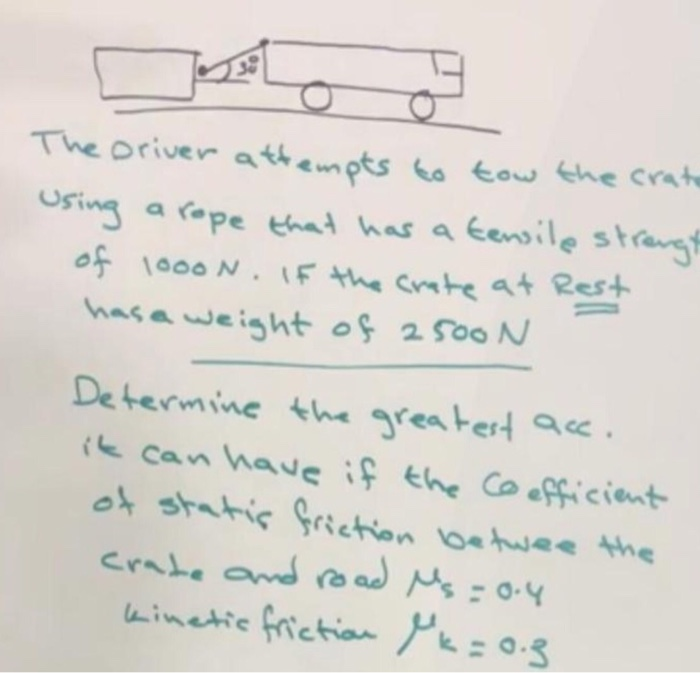 30
The Driver attempts to tow the crate
Using a rope that has a tensile strengt
of 1000 N. IF the crate at Rest
has a weight of 2500 N
Determine the greatest acc.
it can have if the Coefficient
of static friction betwee the
crate and road μs = 0.4
kinetic friction μk = 0.3